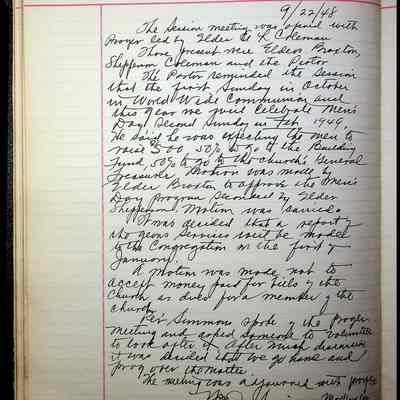 9/22/48
The Session meeting was opened with
Prayer led by Elder T. K. Coleman
Those present were Elders Braxton,
Shepperson Coleman and the Pastor
The Pastor reminded the Session
that the first Sunday in October
is World Wide Communion and
this year we must celebrate Men's
Day Second Sunday in Feb, 1949,
He said he was expecting the men to
raise 500 50% to go to the Building
Fund, 50% to go to the Church's General
Treasure, Motion was made by
Elder Braxton to approve the Men's
Day Program Seconded by Elder
Shepperson, Motion was carried
It was decided that a report of
the years services must be made
to the Congregation on the first of
January.
A Motion was made not to
accept money paid for bills of the
Church as dues for a member of the
church,
Rev Simmons spoke of the prayer
meeting and asked someone to volunteer
to look after it After much discussion
it was decided that we go home and
pray over the matter.
The meeting was adjourned with prayer
Moderator